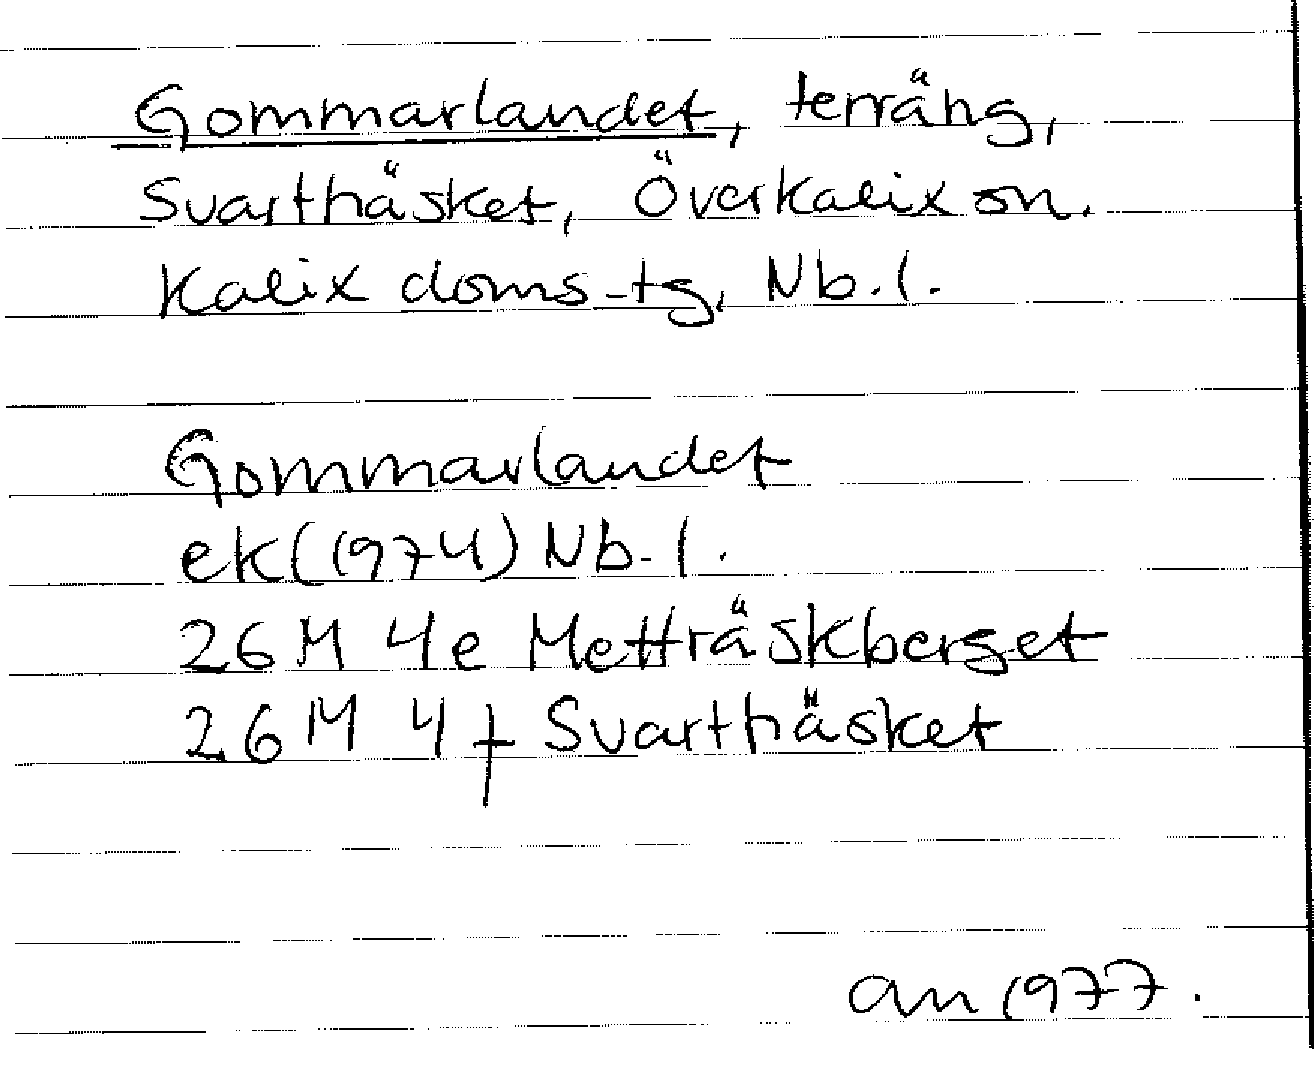 Gommarlandet, terräng,
Svartträsket, Överkalix sn.
Kalix doms.-tg, Nb.l.
Gommarlandet
ek (1974) Nb.l.
26M 4e Metträskberget
26M 4f Svartträsket
an 1977.